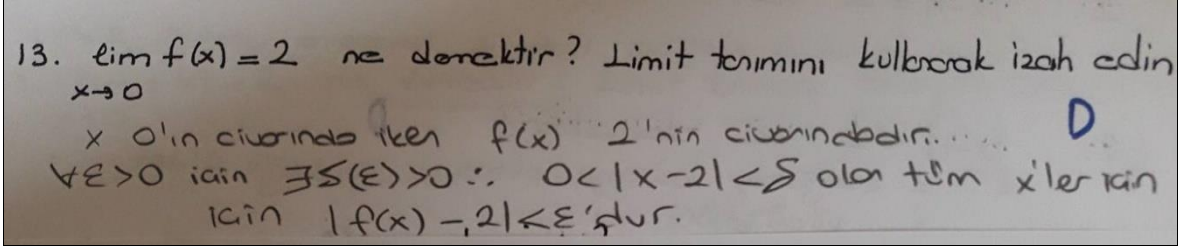 13. lim f(x) = 2 ne demektir? Limit tanımını kullanarak izah edin
x→0
D
x 0'ın civarında iken f(x) 2'nin civarındadır.....
∀ε>0 için ∃δ(ε)>0 ∴ 0<|x-2|<δ olan tüm x'ler için
için |f(x)-2|<ε'dur.